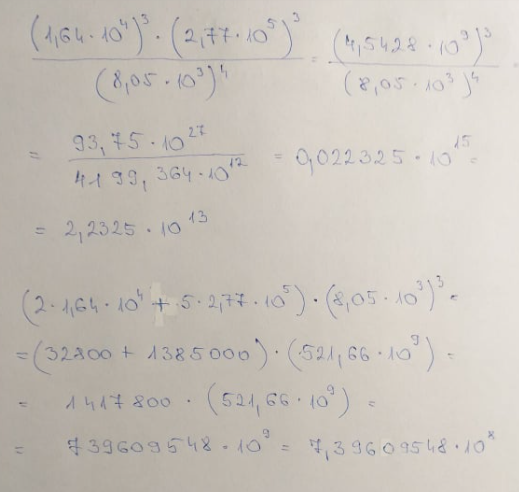 (1,64·10⁴)³ · (2,77·10⁵)³ / (8,05·10³)⁴ = (4,5428·10⁹)³ / (8,05·10³)⁴ =
= 93,75·10²⁷ / 4199,364·10¹² = 0,022325·10¹⁵ =
= 2,2325·10¹³
(2·1,64·10⁴ + 5·2,77·10⁵)·(8,05·10³)³ =
= (32800 + 1385000)·(521,66·10⁹) =
= 1417800 · (521,66·10⁹) =
= 739609548·10⁹ = 7,39609548·10⁸